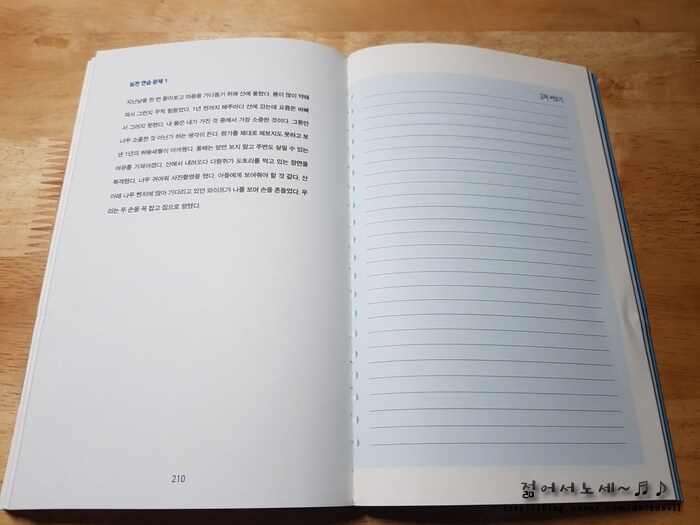 실전 연습 문제 1
지난날을 한 번 돌아보고 마음을 가다듬기 위해 산에 올랐다. 몸이 많이 약해
져서 그런지 무척 힘들었다. 1년 전까지 매주마다 산에 갔는데 요즘은 바빠
서 그러지 못했다. 내 몸은 내가 가진 것 중에서 가장 소중한 것이다. 그동안
너무 소홀한 것 아닌가 하는 생각이 든다. 뭔가를 제대로 해보지도 못하고 보
낸 1년의 허송세월이 아까웠다. 올해는 앞만 보지 말고 주변도 살필 수 있는
여유를 가져야겠다. 산에서 내려오다 다람쥐가 도토리를 먹고 있는 장면을
목격했다. 너무 귀여워 사진촬영을 했다. 아들에게 보여줘야 할 것 같다. 산
아래 나무 벤치에 앉아 기다리고 있던 와이프가 나를 보며 손을 흔들었다. 우
리는 두 손을 꼭 잡고 집으로 향했다.
210
고쳐 써보기
젊어서노세~♬♪